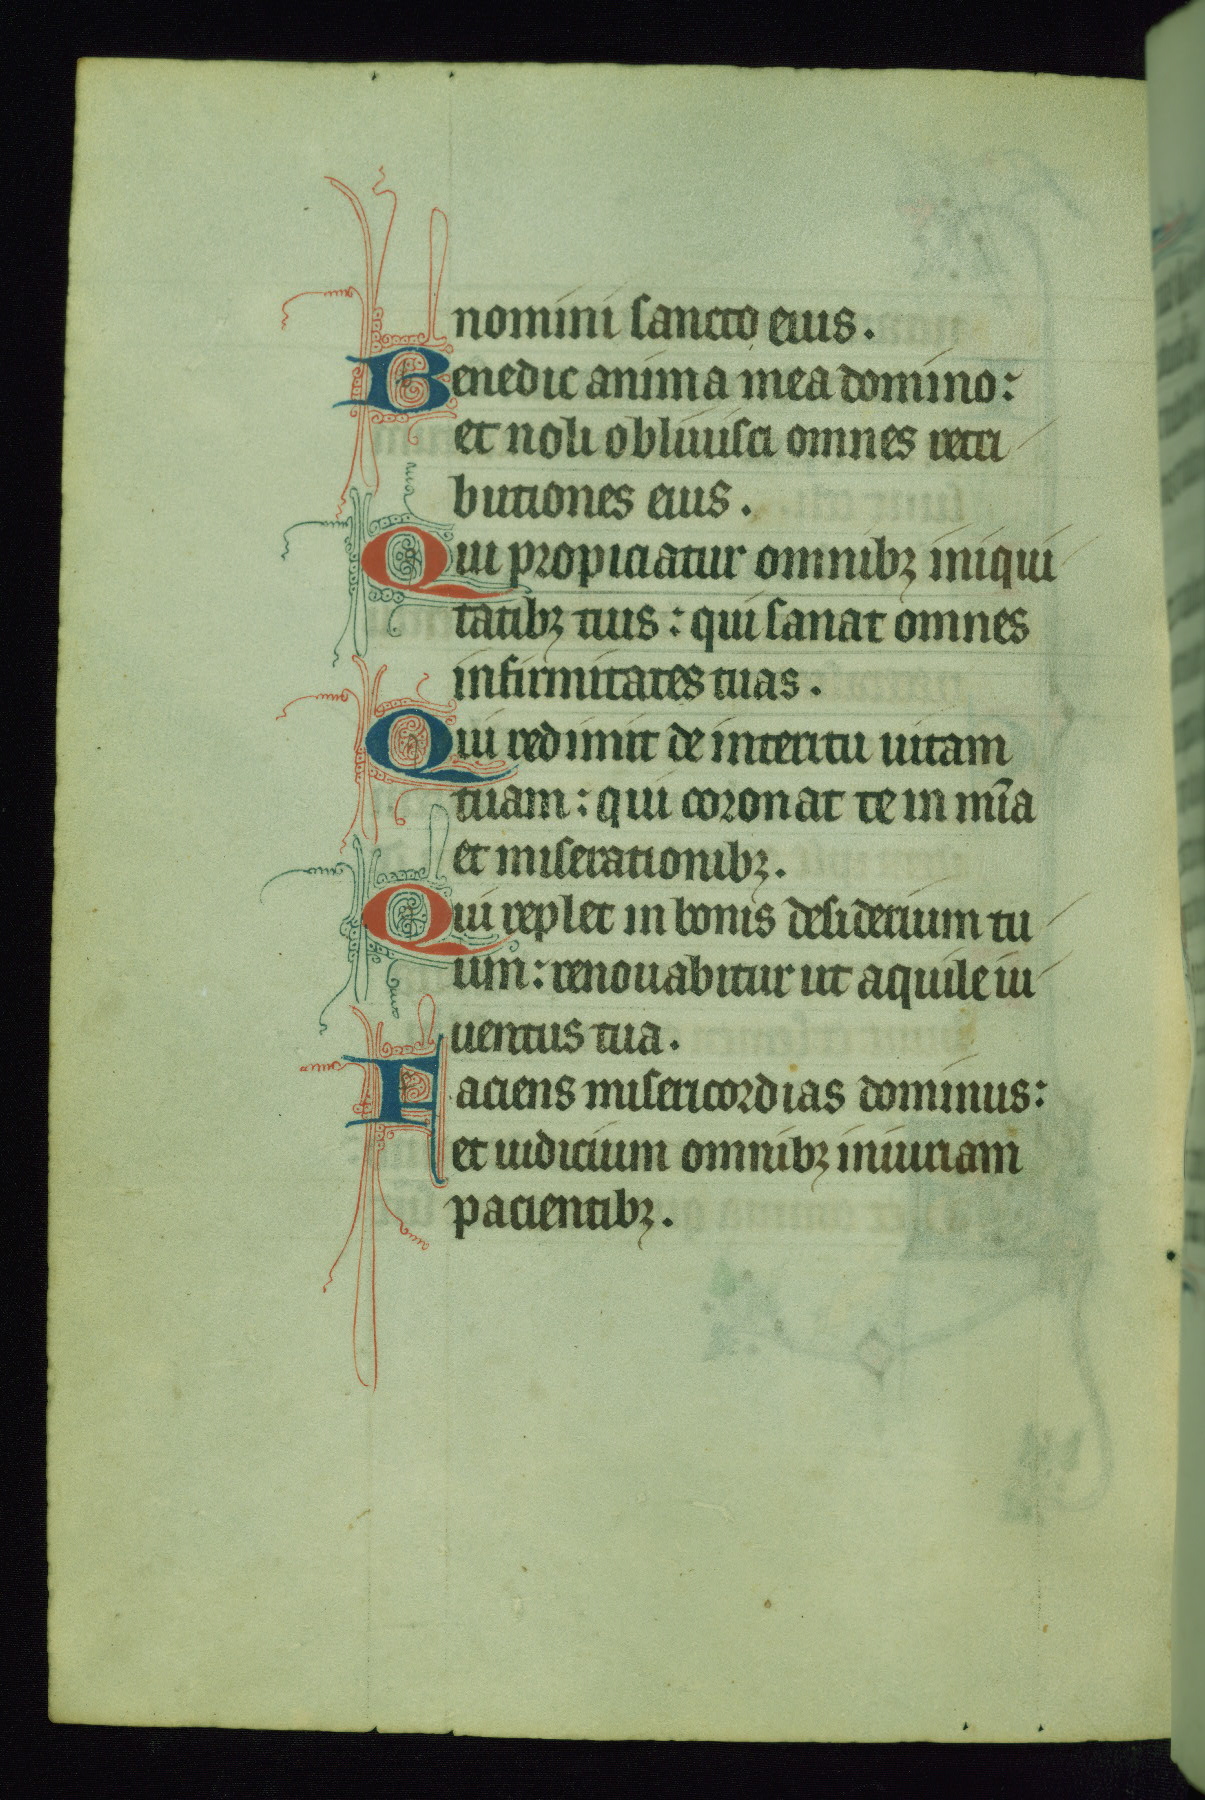 nomini sancto eius.
Benedic anima mea domino:
et noli obliuisci omnes retri
butiones eius.
Qui propiciatur omnibꝫ iniqui
tatibꝫ tuis: qui sanat omnes
infirmitates tuas.
Qui redimit de interitu uitam
tuam: qui coronat te in mĩa
et miserationibꝫ.
Qui replet in bonis desiderium tu
um: renouabitur ut aquile iu
uentus tua.
Faciens misericordias dominus:
et iudicium omnibꝫ iniuriam
pacientibꝫ.